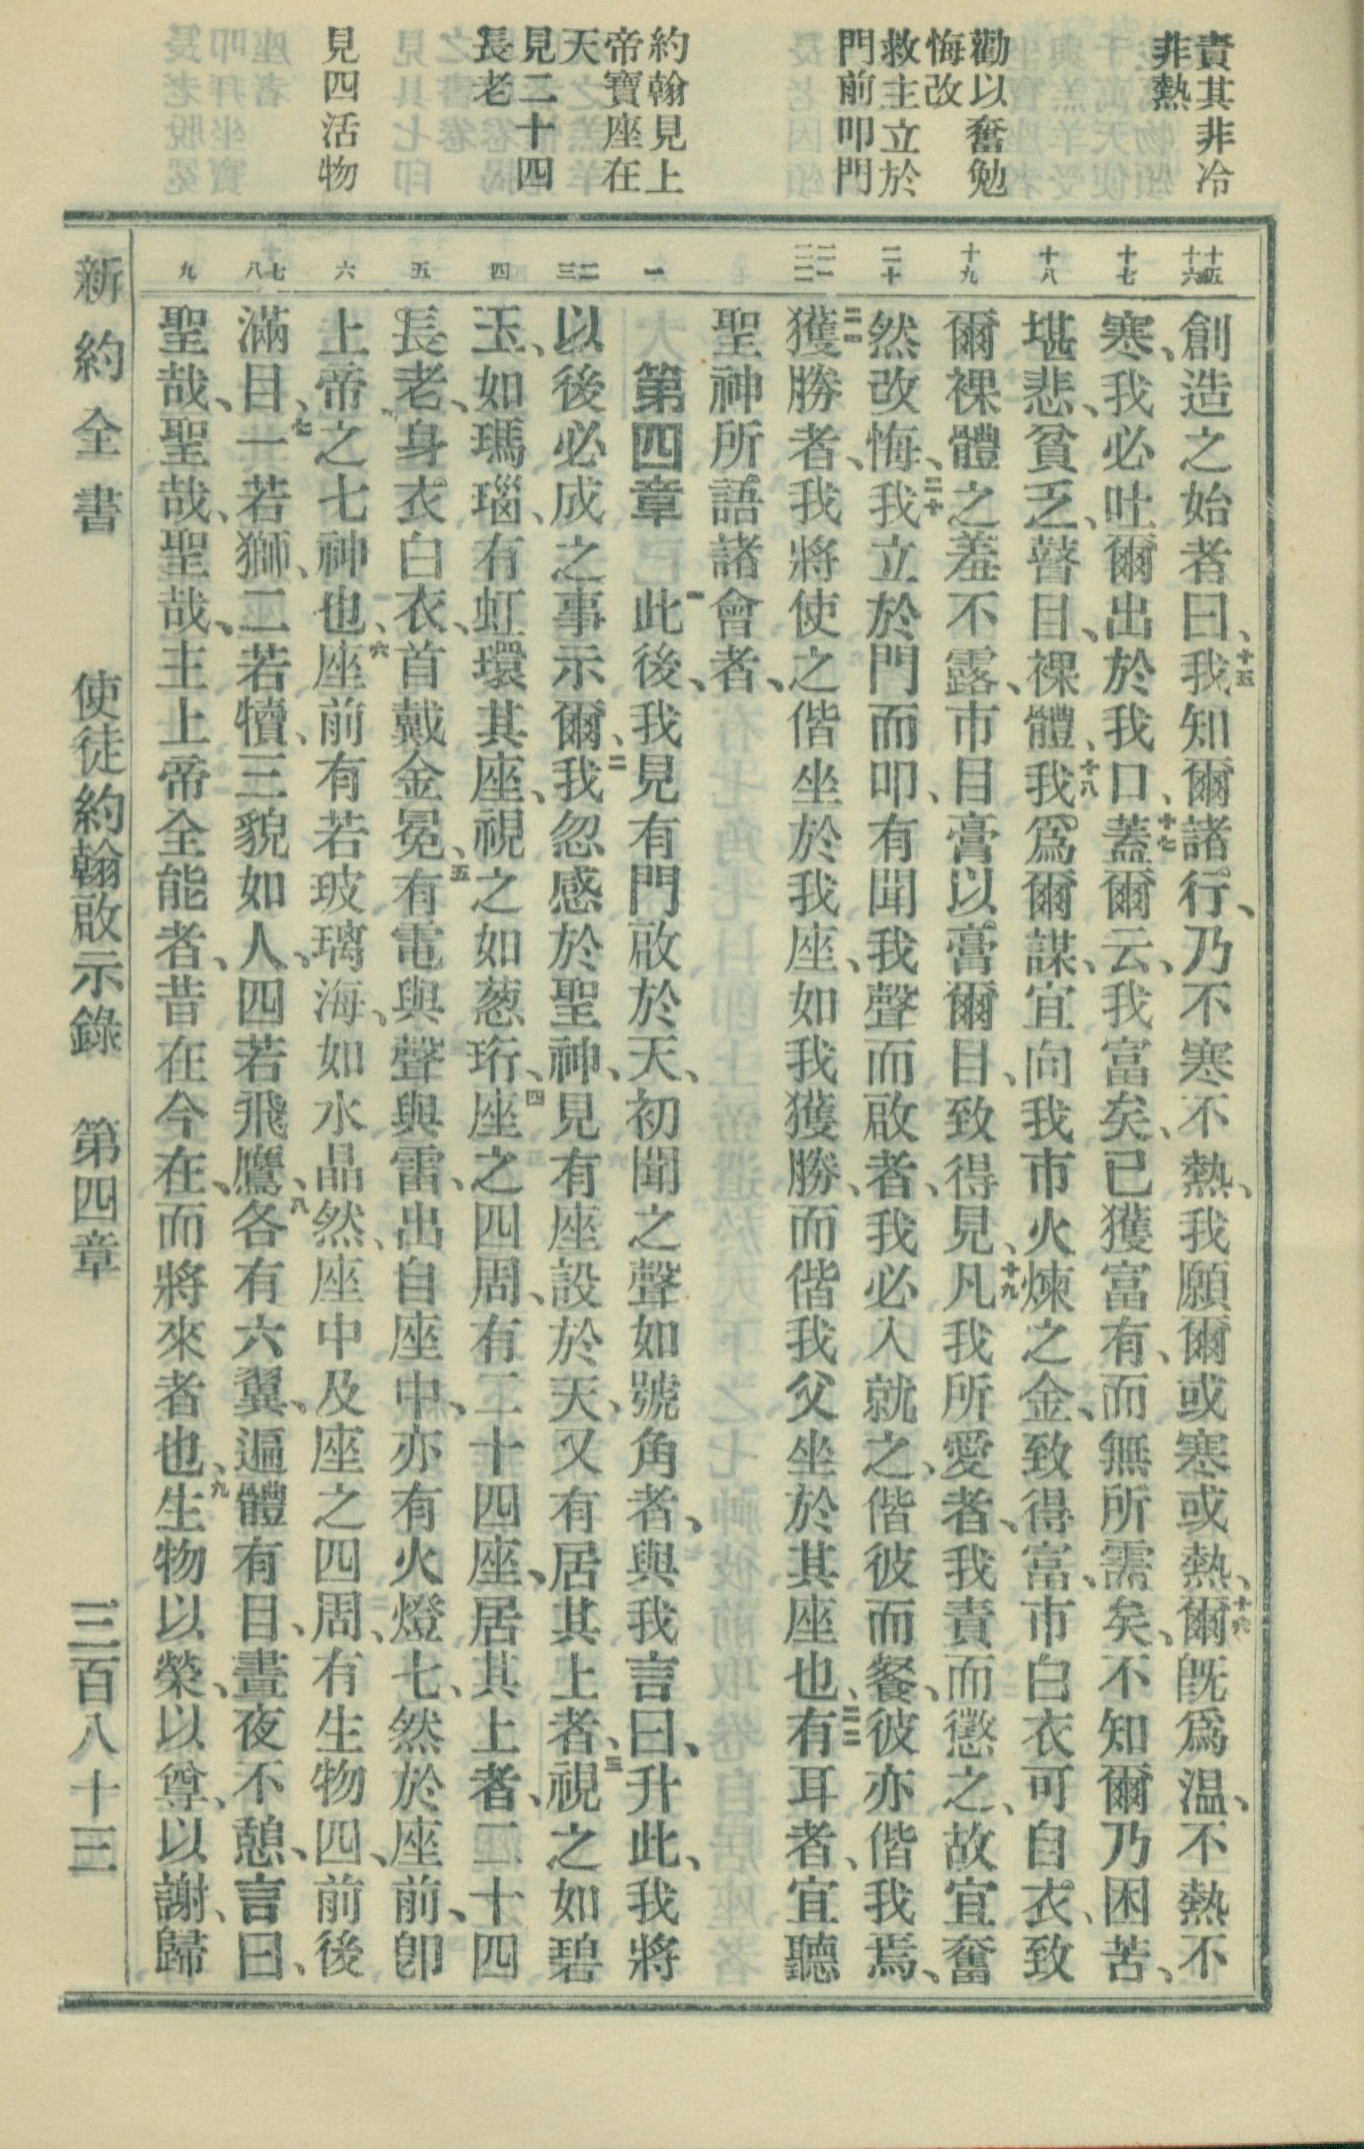 責其非冷
非熱
勸以奮勉
悔改
救主立於
門前叩門
約翰見上
帝寶座在
天
見二十四
長老
見四活物
十五
十六
十七
十八
十九
二十
二一
二二
一
二
三
四
五
六
七
八
九
創造之始者曰、十五我知爾諸行、乃不寒不熱、我願爾或寒或熱、十六爾旣爲温、不熱不
寒、我必吐爾出於我口、十七蓋爾云、我富矣、已獲富有、而無所需矣、不知爾乃困苦、
堪悲、貧乏、瞽目、裸體、十八我爲爾謀、宜向我市火煉之金、致得富、市白衣可自衣、致
爾裸體之羞不露、市目膏以膏爾目、致得見、十九凡我所愛者、我責而懲之、故宜奮
然改悔、二十我立於門而叩、有聞我聲而啟者、我必入就之、偕彼而餐、彼亦偕我焉、
二一獲勝者、我將使之偕坐於我座、如我獲勝、而偕我父坐於其座也、二二有耳者、宜聽
聖神所語諸會者、
第四章 一此後、我見有門啟於天、初聞之聲如號角者、與我言曰、升此、我將
以後必成之事示爾、二我忽感於聖神、見有座設於天、又有居其上者、三視之如碧
玉、如瑪瑙、有虹環其座、視之如葱珩、四座之四周、有二十四座、居其上者、二十四
長老、身衣白衣、首戴金冕、五有電與聲與雷、出自座中、亦有火燈七、然於座前、卽
上帝之七神也、六座前有若玻璃海、如水晶然、座中及座之四周、有生物四、前後
滿目、七一若獅、二若犢、三貌如人、四若飛鷹、八各有六翼、遍體有目、晝夜不憩、言曰、
聖哉、聖哉、聖哉、主上帝全能者、昔在今在、而將來者也、九生物以榮、以尊、以謝、歸
新約全書 使徒約翰啟示錄 第四章 三百八十三